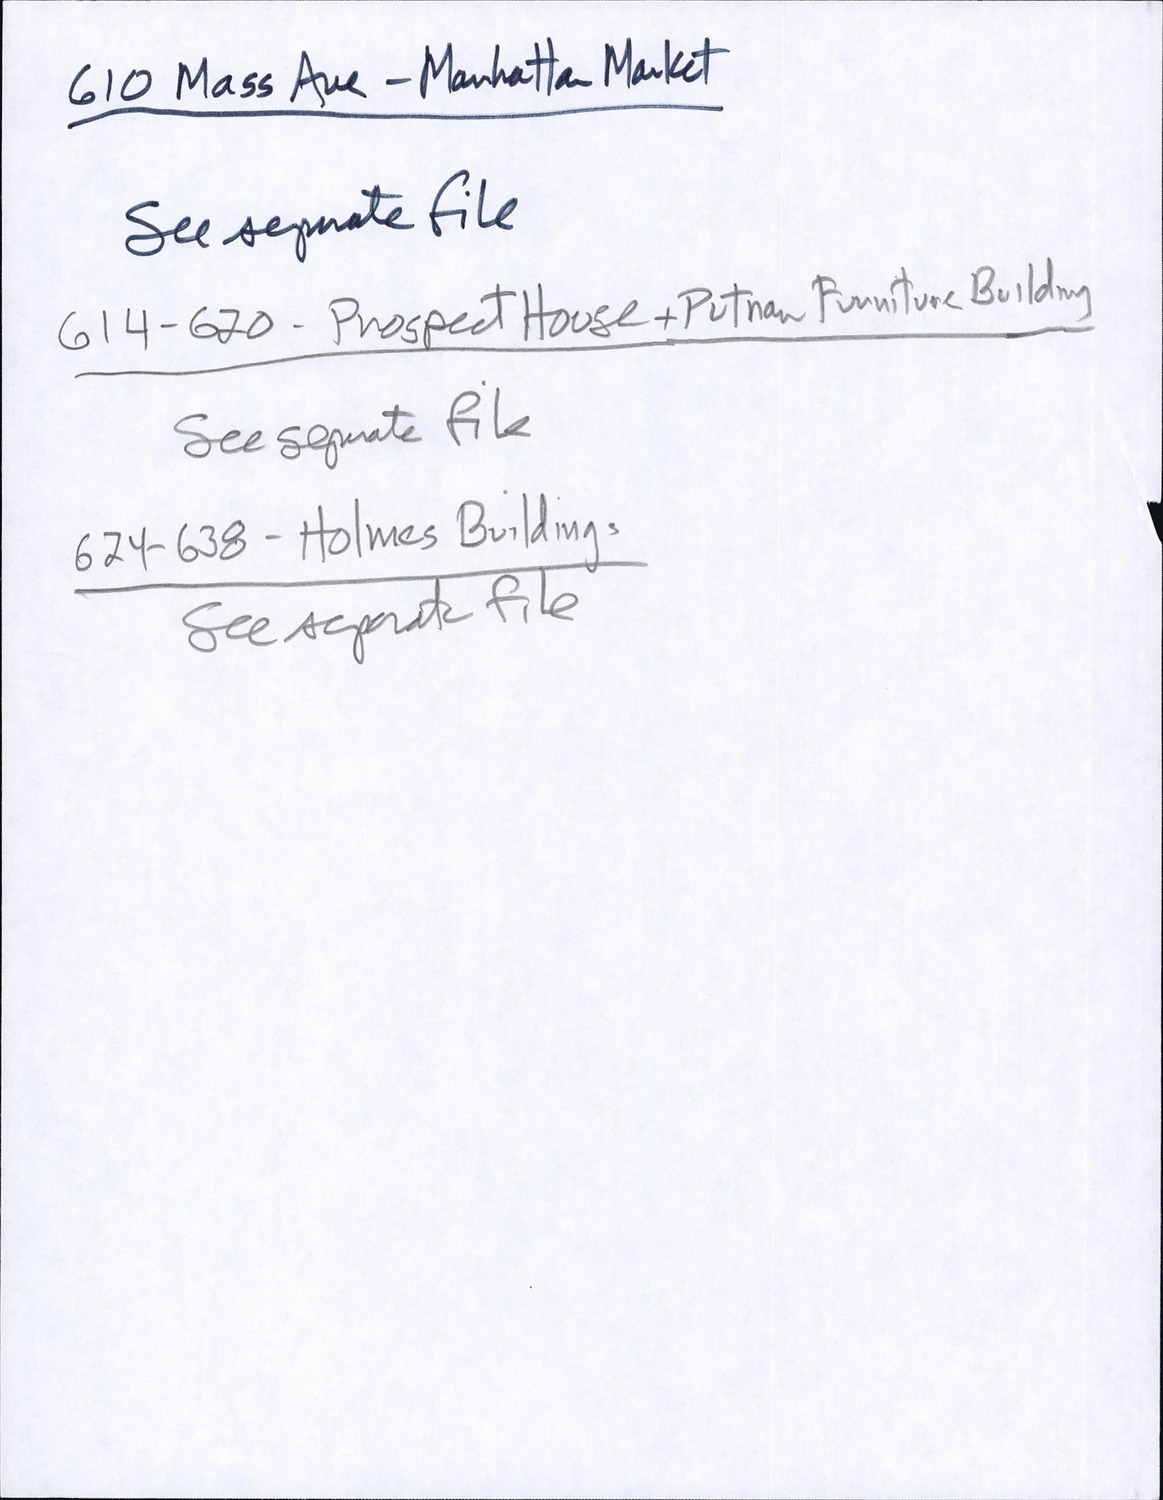 610 Mass Ave - Manhattan Market
See separate file
614-620 - Prospect House + Putnam Furniture Building
See separate file
624-638 - Holmes Buildings
See separate file